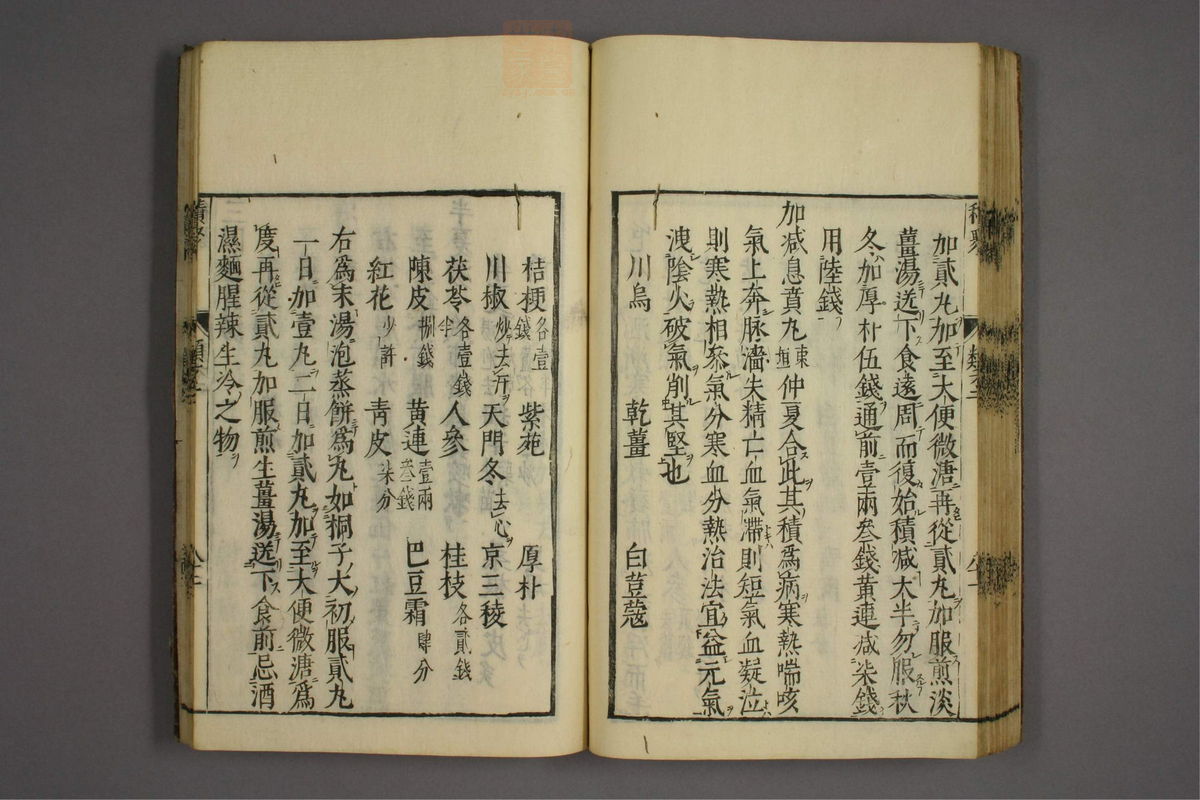 加貳丸加至大便微溏再從貳丸加服煎淡
薑湯送下食遠周而復始積减大半勿服秋
冬加厚朴伍錢通前壹兩叄錢黃連减柒錢
用陸錢
加减息賁丸東垣仲夏合此其積爲病寒熱喘咳
氣上奔脉濇失精亡血氣滯則短氣血凝泣
則寒熱相叅氣分寒血分熱治法宜益元氣
洩陰火破氣削其堅也
川烏 乾薑 白荳蔻
桔梗各壹錢 紫苑 厚朴
川椒炒去汗 天門冬去心 京三稜
茯苓各壹錢半 人參 桂枝各貳錢
陳皮捌錢 黃連壹兩叄錢 巴豆霜肆分
紅花少許 青皮柒分
右爲末湯泡蒸餅爲丸如桐子大初服貳丸
一日加壹丸二日加貳丸加至大便微溏爲
度再從貳丸加服煎生薑湯送下食前忌酒
濕麵腥辣生冷之物